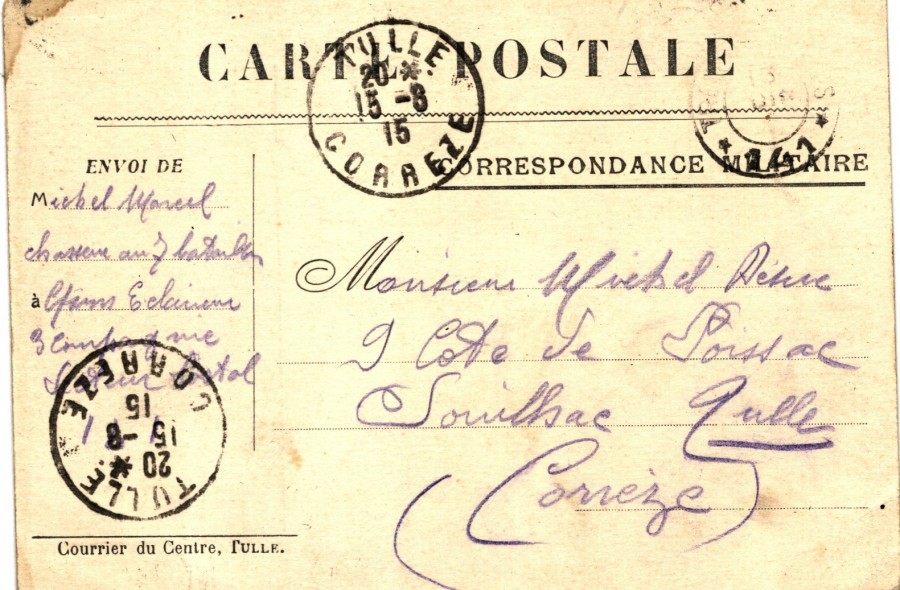 CARTE POSTALE
TULLE
20 *
15 -8
15
CORREZE
* 141 *
CORRESPONDANCE MILITAIRE
ENVOI DE
Michel Marcel
chasseur au 7 bataillon
à Cyclistes Eclaireur
3 Compagnie
Secteur Postal
141
Monsieur Michel Désiré
9 Côte de Poissac
Souilhac Tulle
(Corrèze)
TULLE
20 *
15 -8
15
CORREZE
Courrier du Centre, TULLE.